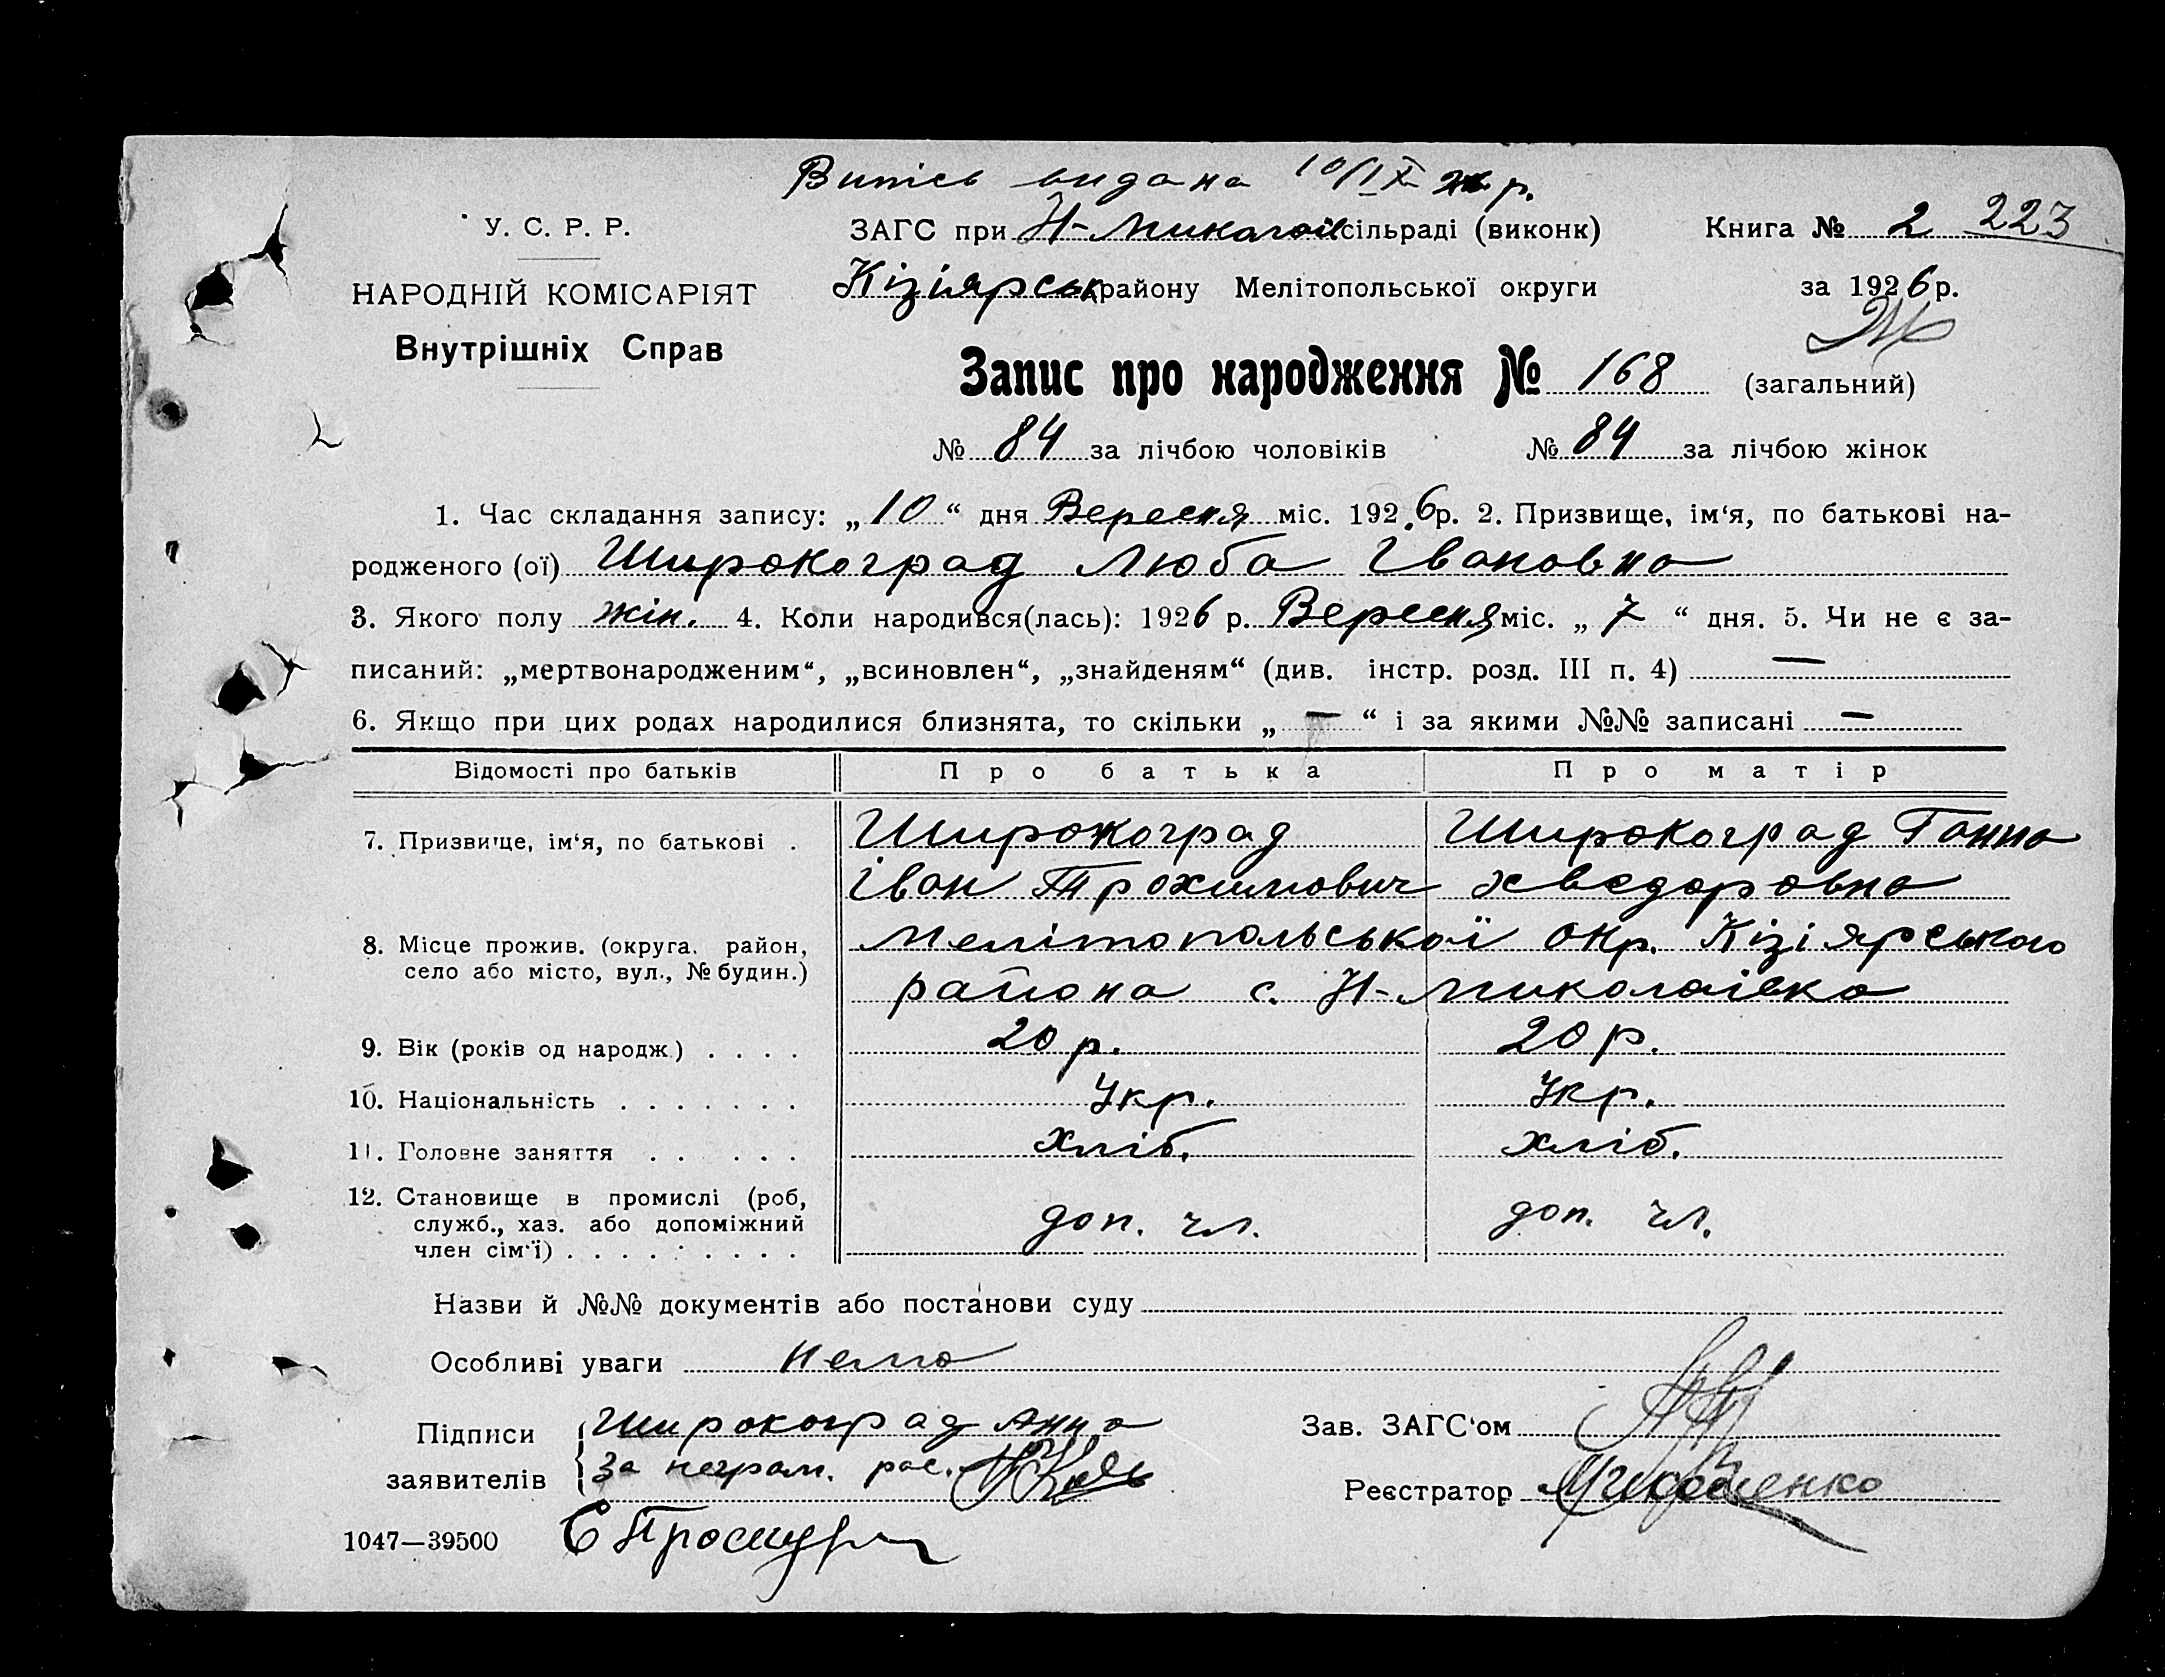 Випись видана 10/IX 26 р.
У. С. Р. Р.
ЗАГС при Н-Миколаїв сільраді (виконк)
Книга № 2 223
НАРОДНІЙ КОМІСАРІЯТ
Кізіярськ району Мелітопольської округи
за 1926 р.
Внутрішніх Справ
Запис про народження № 168 (загальний)
№ 84 за лічбою чоловіків № 84 за лічбою жінок
1. Час складання запису: „10“ дня Вересня міс. 1926 р. 2. Призвище, ім‘я, по батькові на-
родженого (ої) Широкоград Люба Івановна
3. Якого полу жін. 4. Коли народився(лась): 1926 р. Вересня міс. „7“ дня. 5. Чи не є за-
писаний: „мертвонародженим“, „всиновлен“, „знайденям“ (див. інстр. розд. III п. 4) —
6. Якщо при цих родах народилися близнята, то скільки „—“ і за якими №№ записані —
Відомості про батьків Про батька Про матір
7. Призвище, ім‘я, по батькові . Широкоград Широкоград Ганна
Іван Трохимович Хведоровна
8. Місце прожив. (округа, район, Мелітопольської окр. Кізіярського
село або місто, вул., № будин.) района с. Н-Миколаївка
9. Вік (років од народж.) . . . . 20 р. 20 р.
10. Національність . . . . . . . Укр. Укр.
11. Головне заняття . . . . . . хліб. хліб.
12. Становище в промислі (роб,
служб., хаз. або допоміжний доп. чл. доп. чл.
член сім‘ї) . . . . . . . . .
Назви й №№ документів або постанови суду
Особливі уваги нема
Підписи Широкоград Анна
Зав. ЗАГС‘ом
заявителів За неграм. рос.
Реєстратор
1047—39500